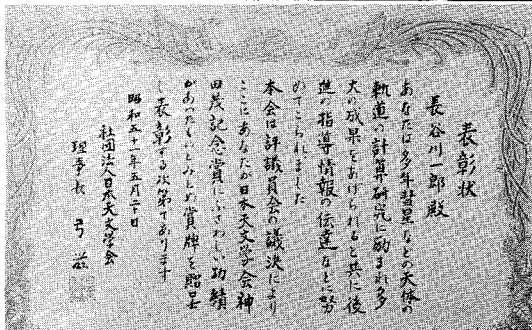 表彰状
長谷川一郎殿
あなたは多年彗星などの天体の
軌道の計算研究に励まれ多
大の成果をあげられると共に後
進の指導情報の伝達などに努
めてこられました
本会は評議員会の議決により
ここにあなたが日本天文学会神
田茂記念賞にふさわしい功績
があったものとみとめ賞牌を贈呈
し表彰する次第であります
昭和五十一年五月二十日
社団法人日本天文学会
理事長 弓 滋